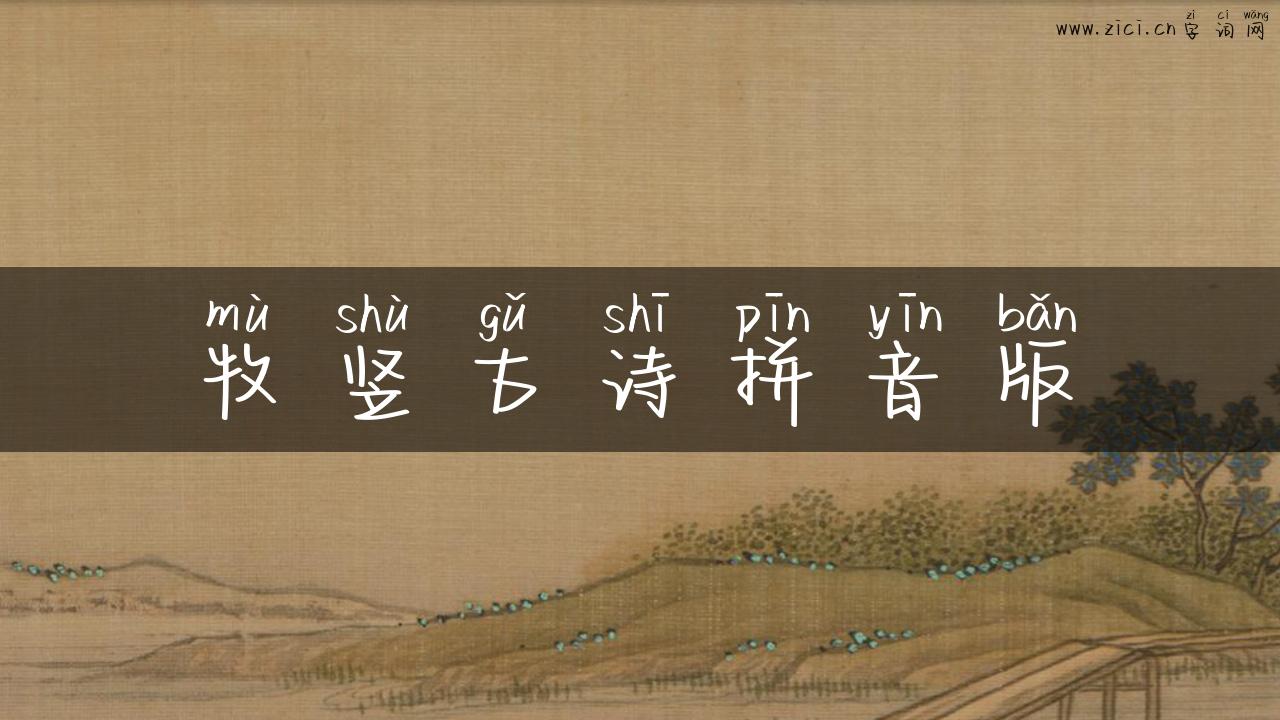 zì cí wǎng
www.zici.cn 字词网
mù shù gǔ shī pīn yīn bǎn
牧竖古诗拼音版